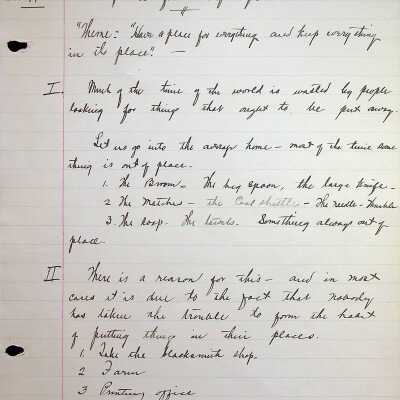 "Theme: "Have a place for everything and keep everything
in its place". —
I. Much of the time of the world is wasted by people
looking for things that ought to be put away.
Let us go into the average home — most of the time some
thing is out of place.
1. The Broom — The big spoon, the large knife —
2 The Matches — the Coal shuttle — The needle — Thimble
3. The soap. The towels. Something always out of
place.
II There is a reason for this — and in most
cases it is due to the fact that nobody
has taken the trouble to form the habit
of putting things in their places.
1. Take the blacksmith shop.
2 Farm
3 Printing office